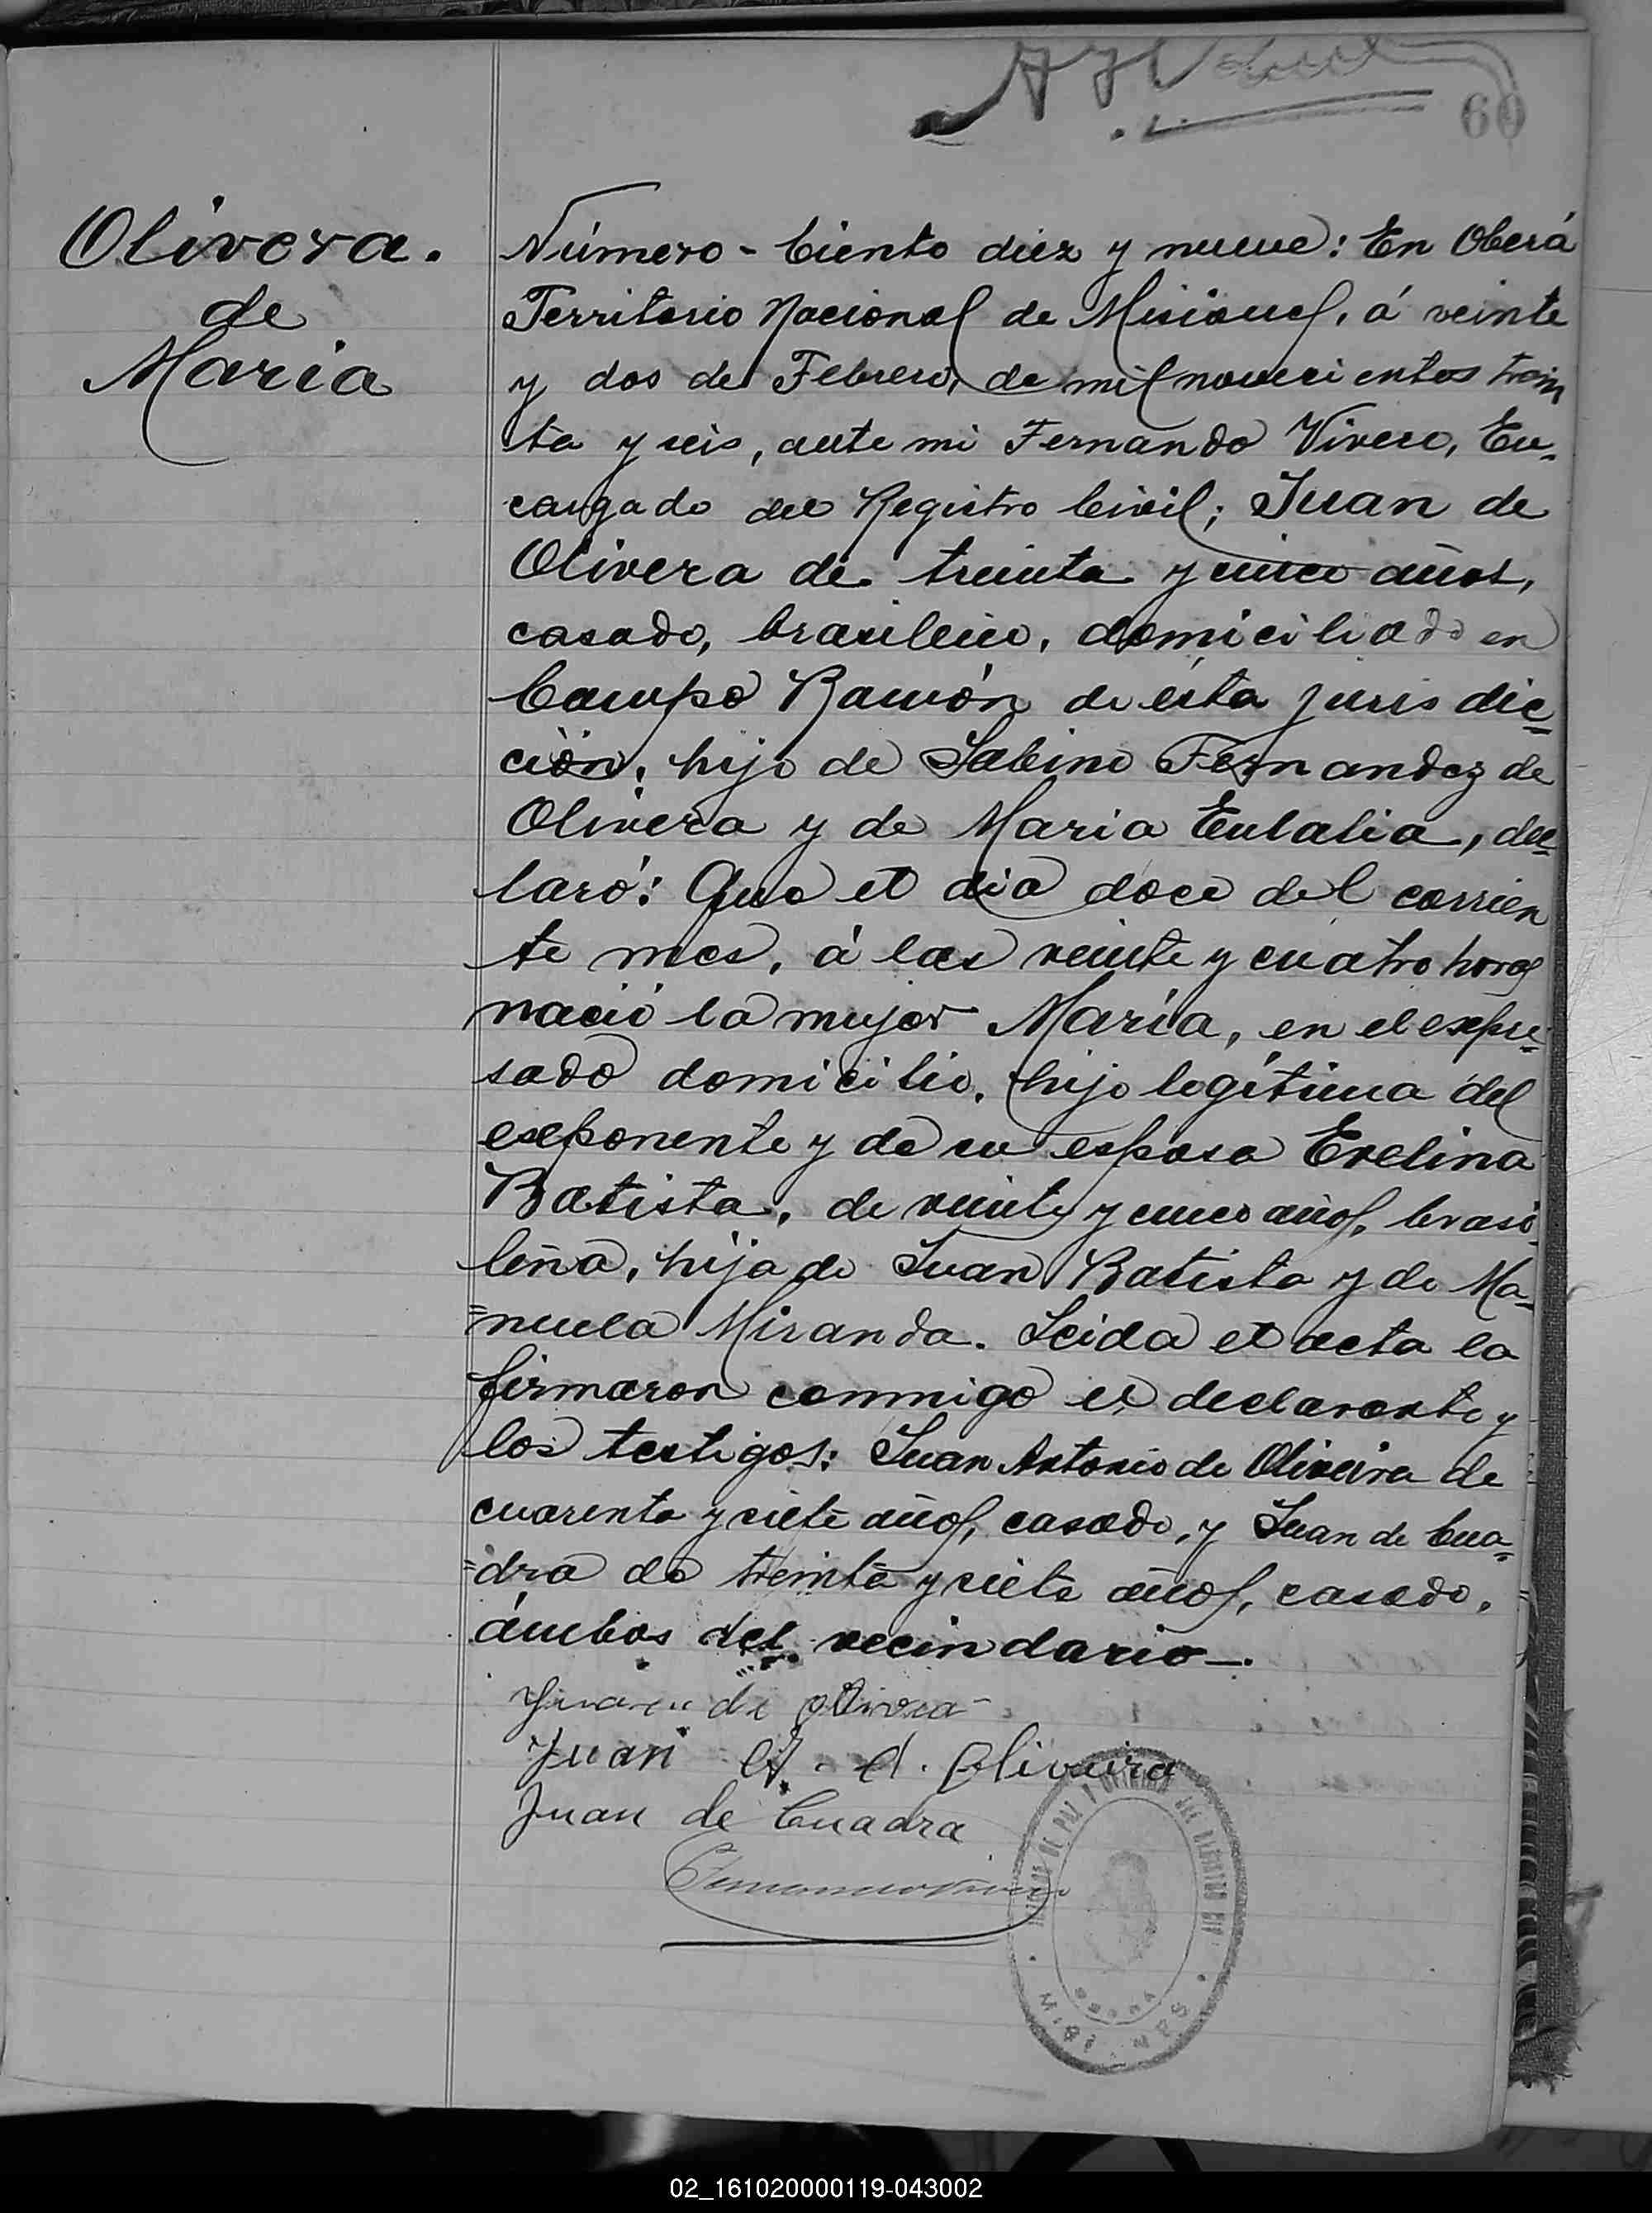 60
Olivera.
de
Maria
Número - Ciento diez y nueve: En Oberá
Territorio Nacional de Misiones, á veinte
y dos de Febrero, de mil novecientos trein
ta y seis, ante mi Fernando Vivero, En-
cargado del Registro Civil; Juan de
Olivera de treinta y cinco años,
casado, brasileño, domiciliado en
Campo Ramón de ésta jurisdic=
ción, hijo de Sabino Fernandez de
Olivera y de Maria Eulalia, dec=
laró: Que el dia doce del corrien
te mes, á las veinte y cuatro horas
nació la mujer María, en el expre=
sado domicilio, hija legítima del
exponente y de su esposa Evelina
Batista, de veinte y cinco años, brasi-
leña, hija de Juan Batista y de Ma-
=nuela Miranda. Leida el acta la
firmaron conmigo el declarante y
los testigos: Juan Antonio de Oliveira de
cuarenta y siete años, casado, y Juan de Cua=
=dra de treinta y siete años, casado,
ámbos del vecindario-.
Juan de Olivera
Juan A. d. Oliveira
Juan de Cuadra
Fernando Vivero
DE PAZ Y OFICINA DEL REGISTRO CIVIL
MISIONES
02_161020000119-043002